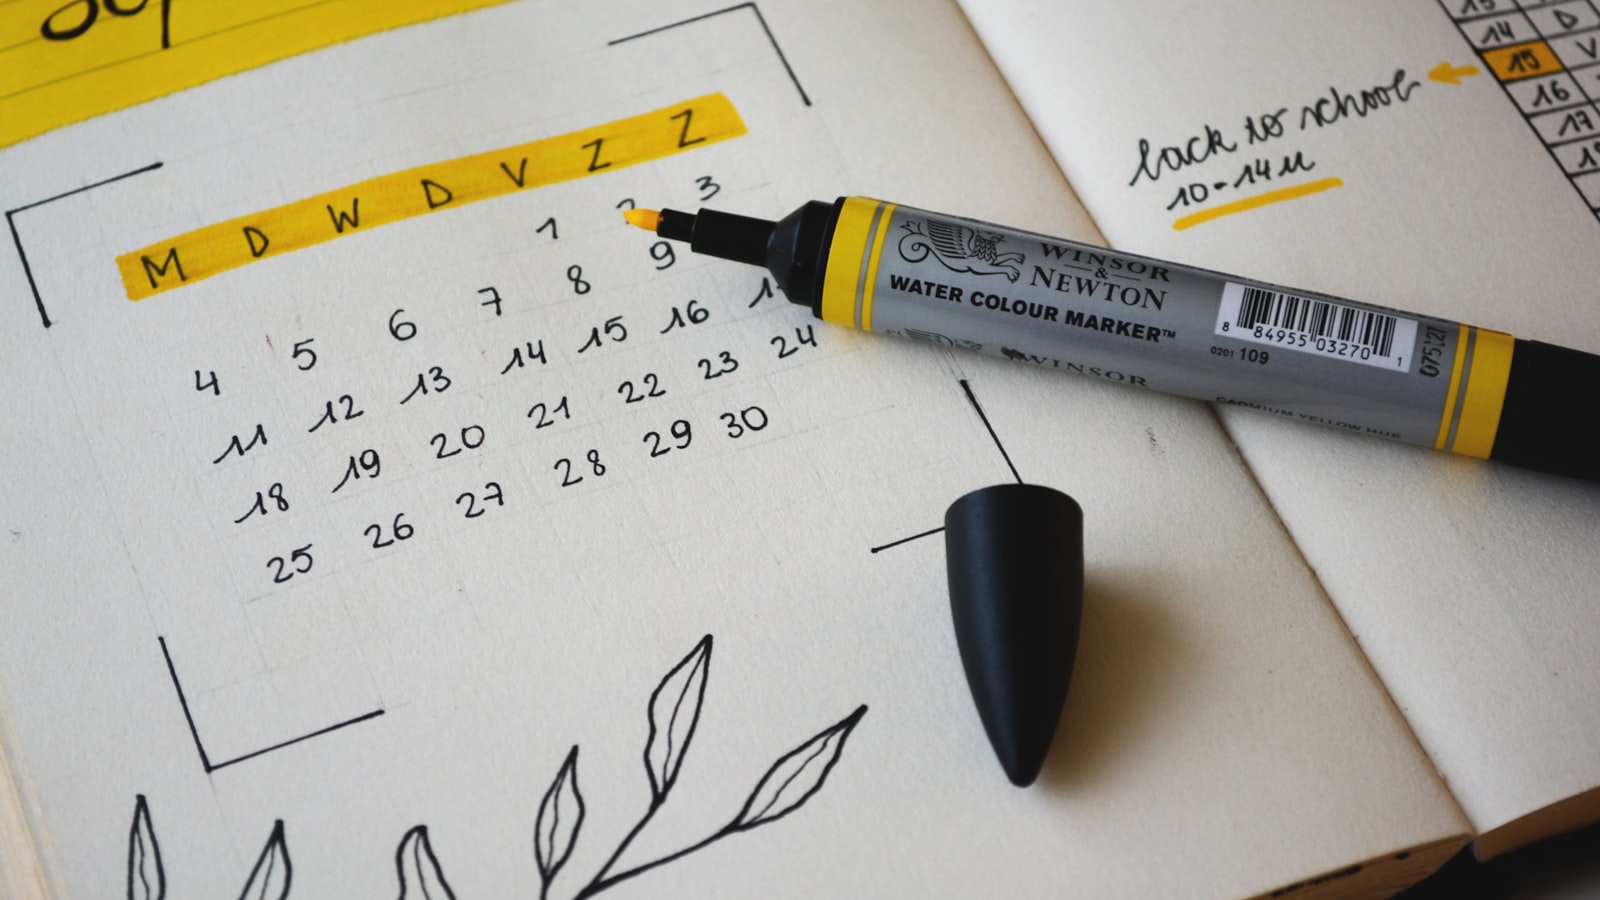 M D W D V Z Z
1 2 3
4 5 6 7 8 9
11 12 13 14 15 16
18 19 20 21 22 23 24
25 26 27 28 29 30
back to school
10-14u
14 D
15 V
16
17
WINSOR
&
NEWTON
WATER COLOUR MARKER™
8 84955 03270 1
0201 109
075121
WINSOR
CADMIUM YELLOW HUE